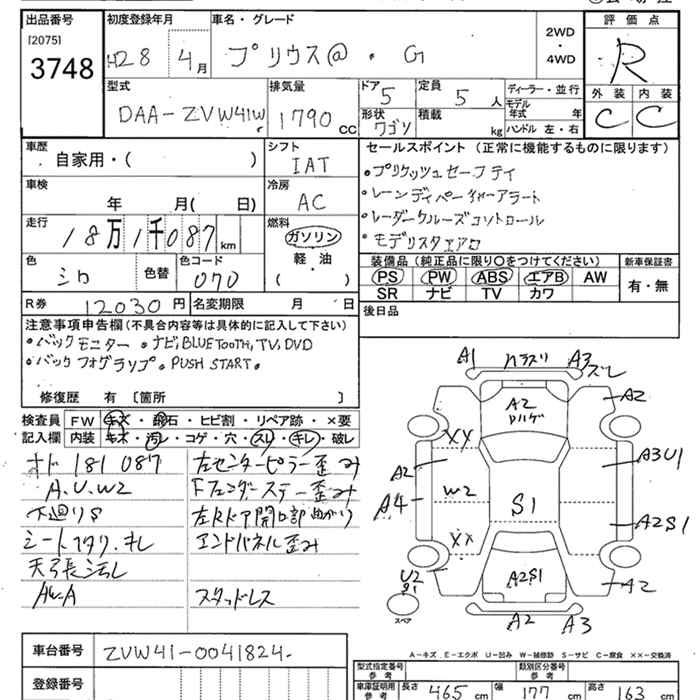 出品番号
[2075]
3748
初度登録年月
H28 4月
車名・グレード
プリウスα・G
2WD
・
4WD
評価点
R
外装 内装
C C
型式
DAA-ZVW41W
排気量
1790 CC
ドア
5
定員
5 人
形状
ワゴン
積載
kg
ディーラー・並行
モデル年式 年
ハンドル 左・右
車歴
自家用・( )
シフト
IAT
車検
年 月( 日)
冷房
AC
走行
18万1千087 km
燃料
ガソリン
・
軽・油
( )
色
シロ
色替
色コード
070
R券 12030円
名変期限 月 日
セールスポイント (正常に機能するものに限ります)
・プリクラッシュセーフティ
・レーンディパーチャーアラート
・レーダークルーズコントロール
・モデリスタエアロ
装備品(純正品に限り○をつけてください)
PS PW ABS エアB AW
SR ナビ TV カワ
新車保証書
有・無
後日品
注意事項申告欄(不具合内容等は具体的に記入して下さい)
・バックモニター ・ナビ,BLUETOOTH,TV,DVD
・バックフォグランプ。PUSH START.
修復歴 有〔箇所 〕
検査員記入欄
FW キズ・飛石・ヒビ割・リペア跡・×要
内装 キズ・汚レ・コゲ・穴・スレ・キレ・破レ
オド 181087
A.U.W2
下廻りS
シート
天張汚レ
AW.A
左センターピラー歪み
Fフェンダーステー歪み
左Rドア開口部曲がり
エンドパネル歪み
スタッドレス
A1 ハラズリ A3 ズレ
A2
A2
ハゲ
XX
A2
A4
W2
S1
A3U1
A2S1
XX
A2S1
U2
S1
スペア
A2
A2 A3
A-キズ E-エクボ U-凹み W-補修跡 S-サビ C-腐食 ××-交換済
車台番号 ZVW41-0041824-
登録番号
型式指定番号
参考
類別区分番号
参考
車庫証明用
参考
長さ 465 cm
幅 177 cm
高さ 163 cm